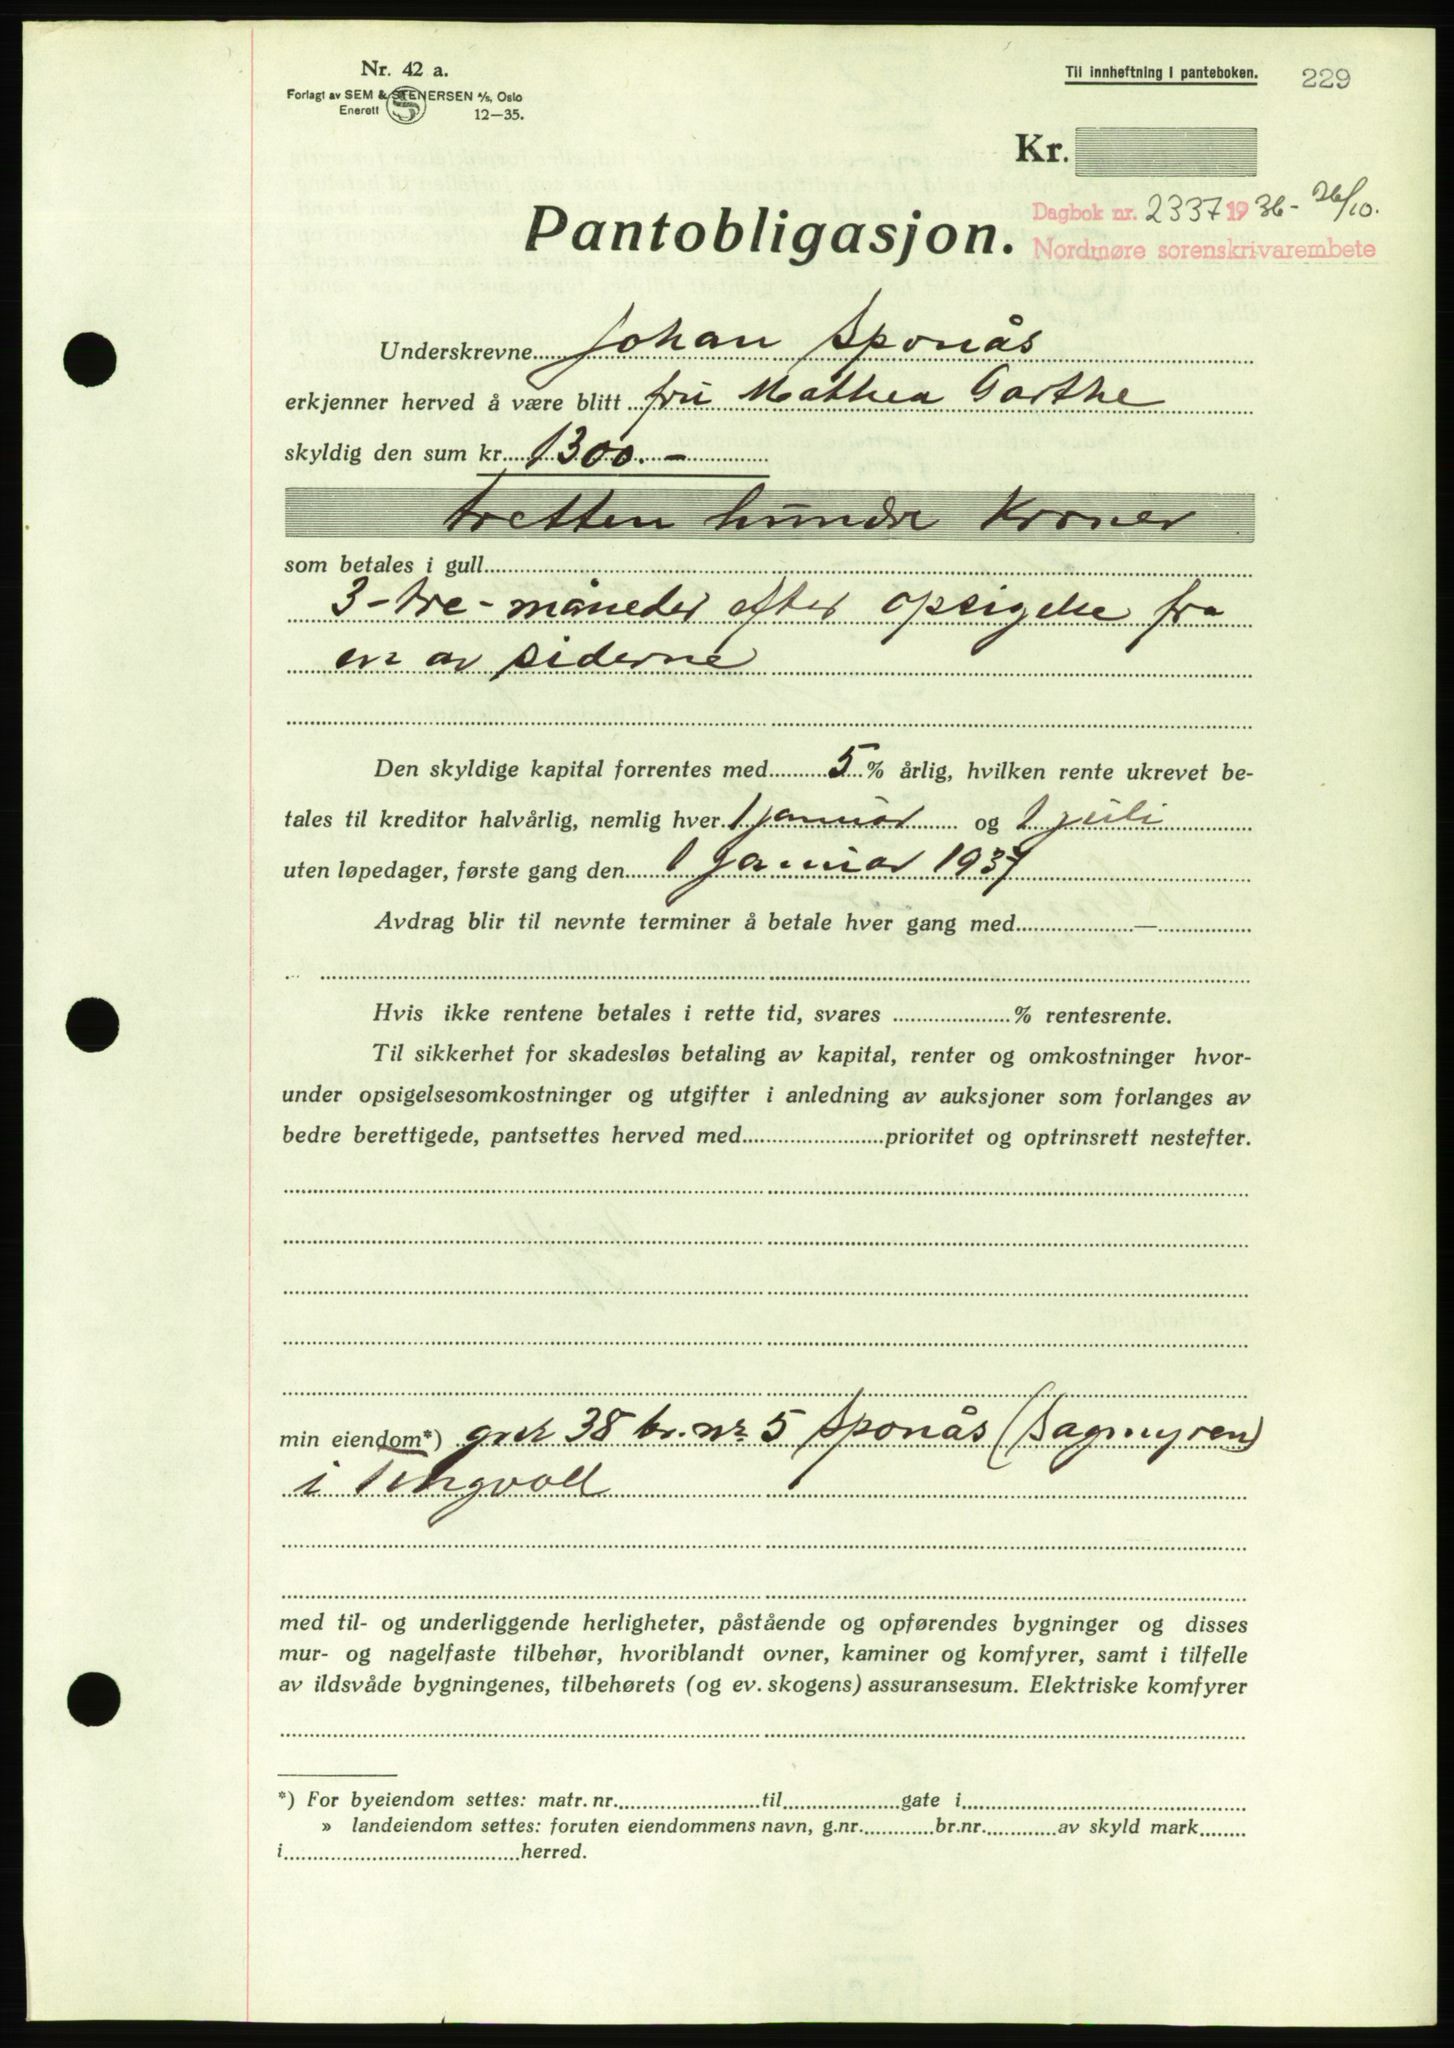 Nr. 42 a.
Forlagt av SEM & STENERSEN A/S, Oslo
Enerett 12—35.
Til innheftning i panteboken.
229
Kr.
Dagbok nr. 2337 1936 - 26/10.
Nordmøre sorenskrivarembete
Pantobligasjon.
Underskrevne Johan Sponås
erkjenner herved å være blitt fru Mathea Garthe
skyldig den sum kr. 1300.-
tretten hundre Kroner
som betales i gull
3-tre-måneder efter opsigelse fra
en av siderne
Den skyldige kapital forrentes med 5 % årlig, hvilken rente ukrevet be-
tales til kreditor halvårlig, nemlig hver 1 januar og 1 juli
uten løpedager, første gang den 1 januar 1937
Avdrag blir til nevnte terminer å betale hver gang med —
Hvis ikke rentene betales i rette tid, svares % rentesrente.
Til sikkerhet for skadesløs betaling av kapital, renter og omkostninger hvor-
under opsigelsesomkostninger og utgifter i anledning av auksjoner som forlanges av
bedre berettigede, pantsettes herved med prioritet og optrinsrett nestefter.
min eiendom*) gnr 38 br. nr 5 Sponås (Sagmyren)
i Tingvoll
med til- og underliggende herligheter, påstående og opførendes bygninger og disses
mur- og nagelfaste tilbehør, hvoriblandt ovner, kaminer og komfyrer, samt i tilfelle
av ildsvåde bygningenes, tilbehørets (og ev. skogens) assuransesum. Elektriske komfyrer
*) For byeiendom settes: matr. nr. til gate i
» landeiendom settes: foruten eiendommens navn, g.nr. br.nr. av skyld mark
i herred.